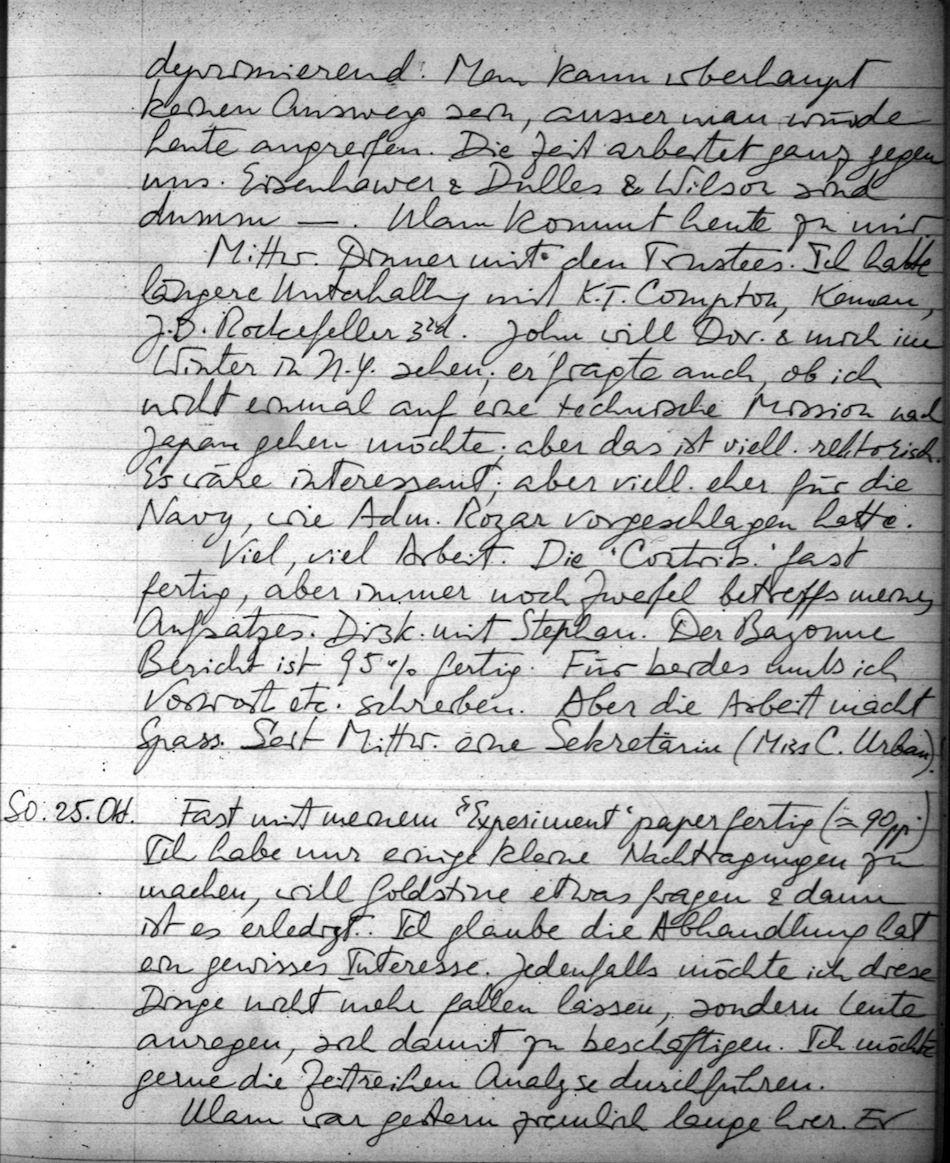 deprimierend. Man kann überhaupt
keinen Ausweg sehn, ausser man würde
heute angreifen. Die Zeit arbeitet ganz gegen
uns. Eisenhower & Dulles & Wilson sind
dumm —. Ulam kommt heute zu mir.
Mittw. Dinner mit den Trustees. Ich hatte
längere Unterhaltg mit K.T. Compton, Kennan,
J.D. Rockefeller 3rd. John will Dor. & mich im
Winter in N.Y. sehen; er fragte auch, ob ich
nicht einmal auf eine technische Mission nach
Japan gehen möchte; aber das ist viell. rehtorisch.
Es wäre interessant; aber viell. eher für die
Navy, wie Adm. Rozar vorgeschlagen hatte.
Viel, viel Arbeit. Die 'Contrib.' fast
fertig, aber immer noch Zweifel betreffs meines
Aufsatzes. Disk. mit Stephan. Der Bayonne
Bericht ist 95% fertig. Für beides muss ich
Vorwort etc. schreiben. Aber die Arbeit macht
Spass. Seit Mittw. eine Sekretärin (Miss C. Urban).
So. 25. Okt. Fast mit meinem "Experiment" paper fertig (≃ 90 pp.)
Ich habe nur einige kleine Nachtragungen zu
machen, will Goldstine etwas fragen & dann
ist es erledigt. Ich glaube die Abhandlung hat
ein gewisses Interesse. Jedenfalls möchte ich diese
Dinge nicht mehr fallen lassen, sondern Leute
anregen, sich damit zu beschäftigen. Ich möchte
gerne die Zeitreihen Analyse durchführen.
Ulam war gestern ziemlich lange hier. Er